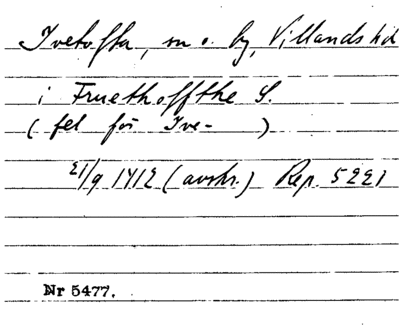 Ivetofta, sn o. by, Villands hd
i Fruethoffthe S.
(fel för Ive- )
21/9 1412 (avskr.) Rep. 5221
Nr 5477.